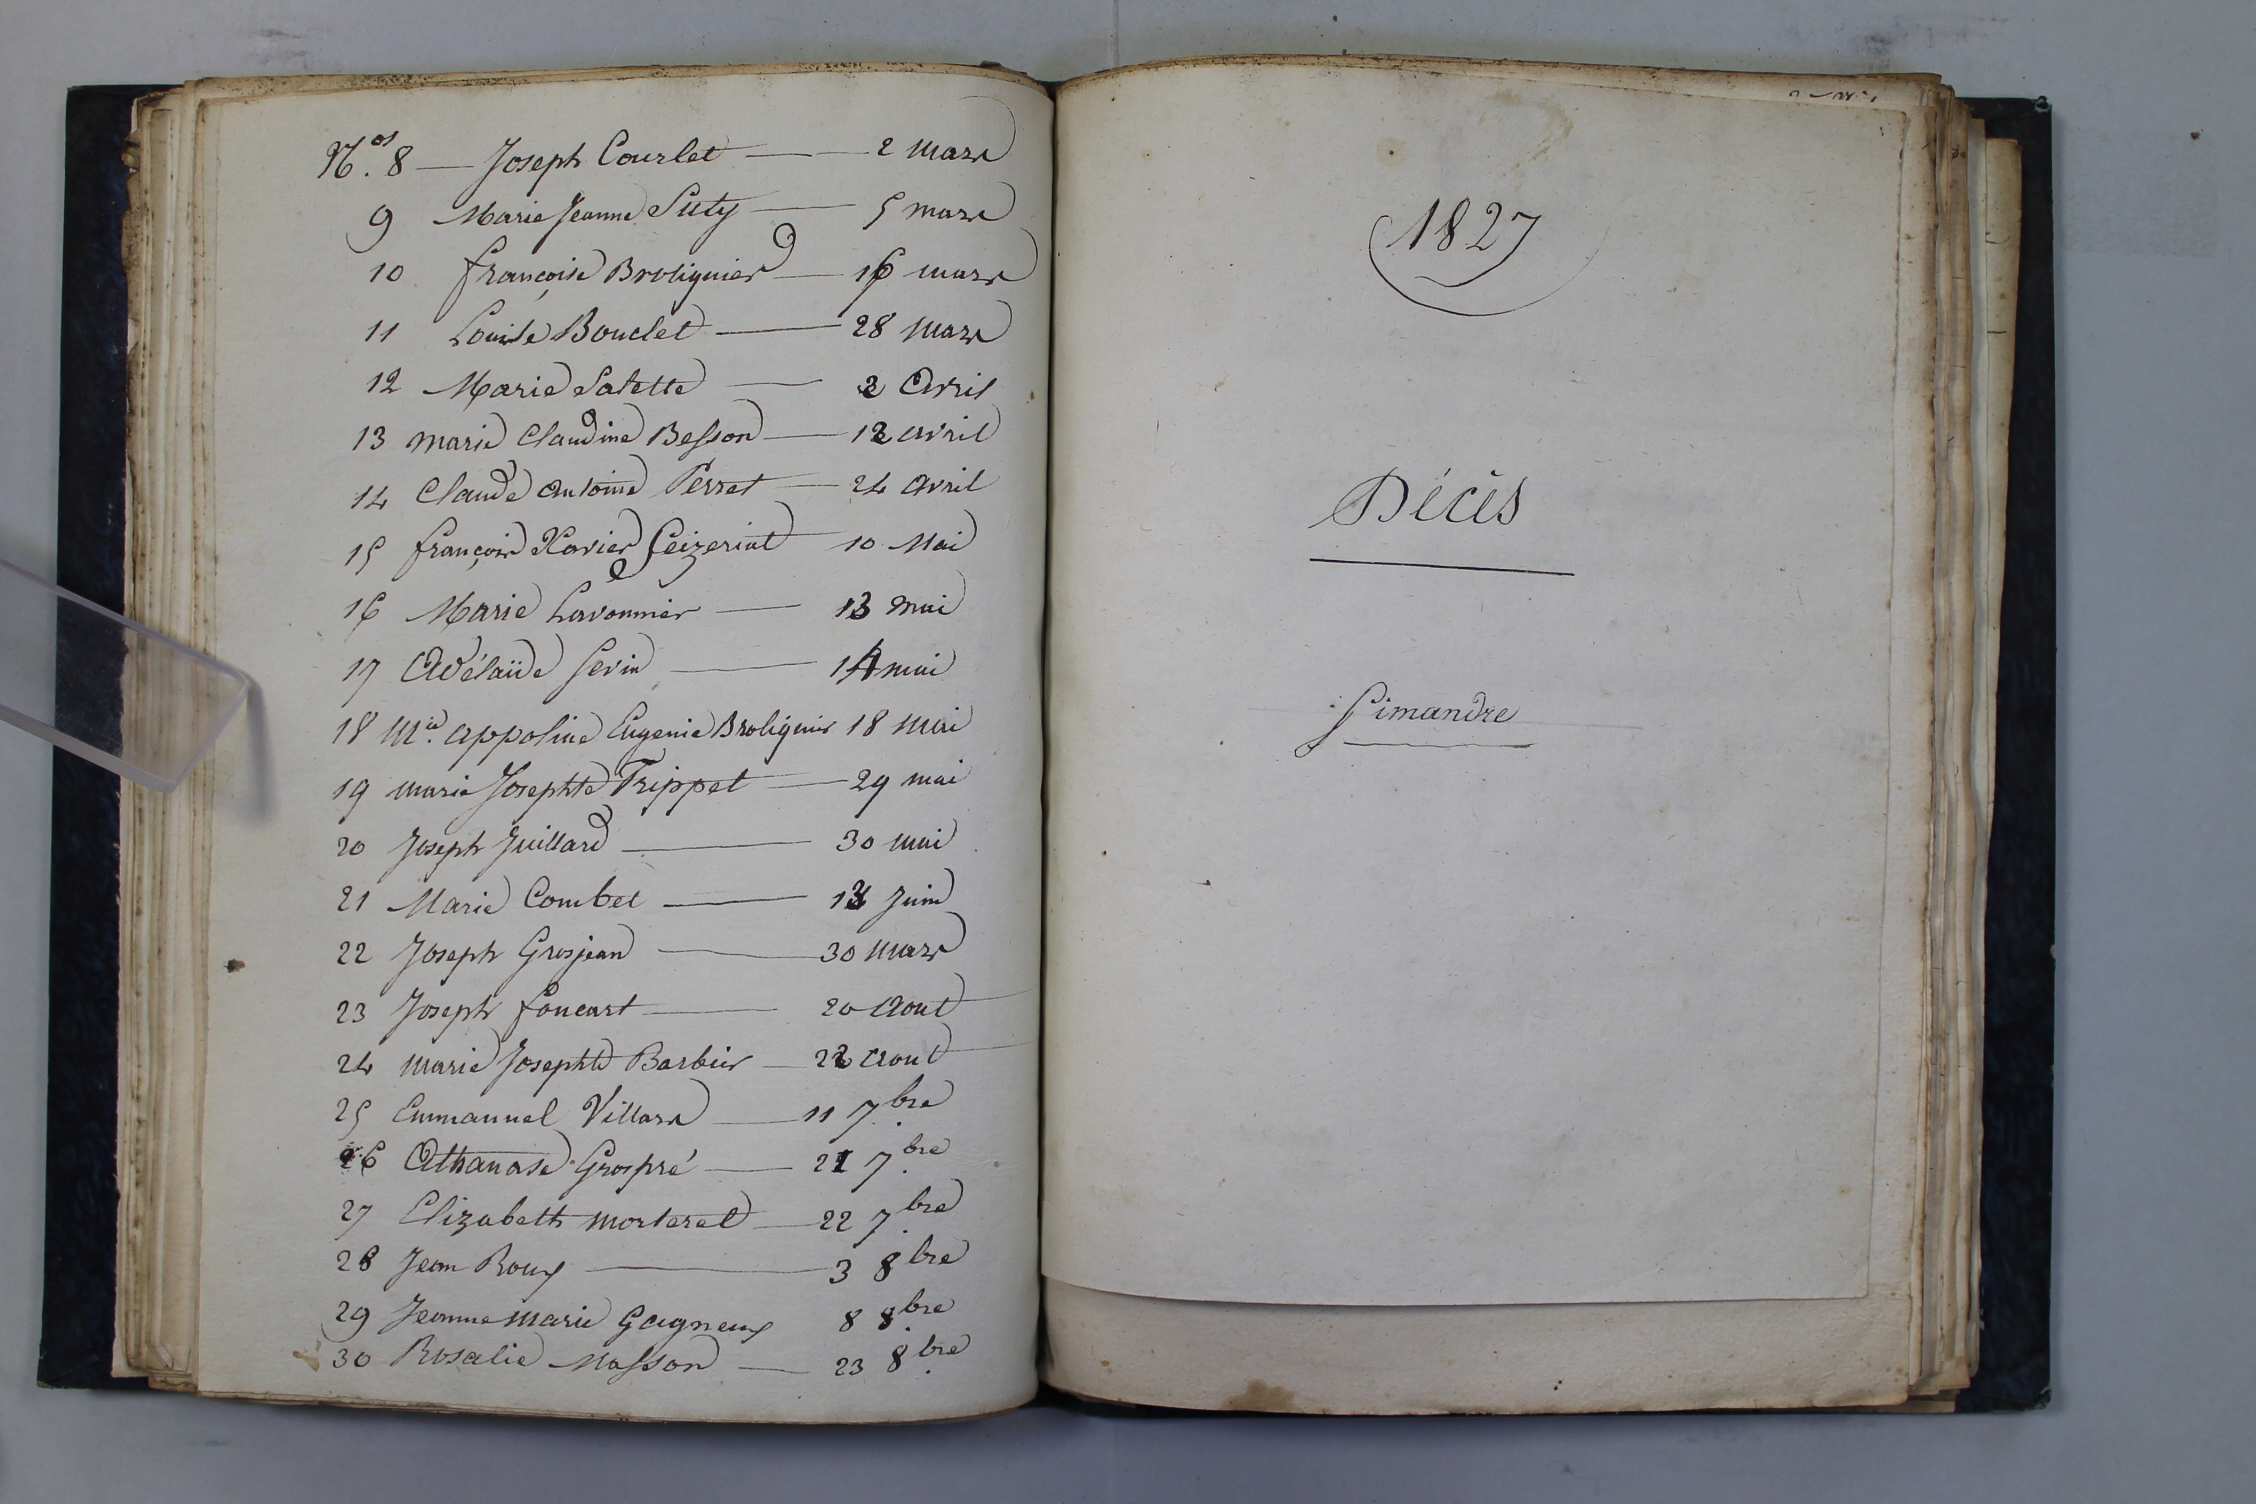 Nos. 8 — Joseph Courlet — 2 Mars
9 Marie Jeanne Suty — 5 mars
10 françoise Broliquier — 16 mars
11 Louise Bouclet — 28 Mars
12 Marie Salette — 2 Avril
13 Marie Claudine Besson — 12 avril
14 Claude Antoine Perret — 24 Avril
15 françois Xavier 10 Mai
16 Marie Lavonnier — 13 mai
17 Adélaïde Sevin — 14 mai
18 Mie. Appoline Eugenie Broliquier 18 Mai
19 Marie Josephte Trippet — 29 mai
20 Joseph Juillard — 30 Mai
21 Marie Combet — Juin
22 Joseph Grosjean — 30 Mars
23 Joseph foucart — 20 Aout
24 Marie Josephte Barbier — 22 Aout
25 Emmanuel Villars — 11 7bre
26 Athanase Grospré — 21 7bre
27 Elizabeth Morteret — 22 7bre
28 Jean Roux — 3 8bre
29 Jeanne Marie Gagneux 8 8bre
30 Rosalie Masson — 23 8bre
1827
Décès
Simandre